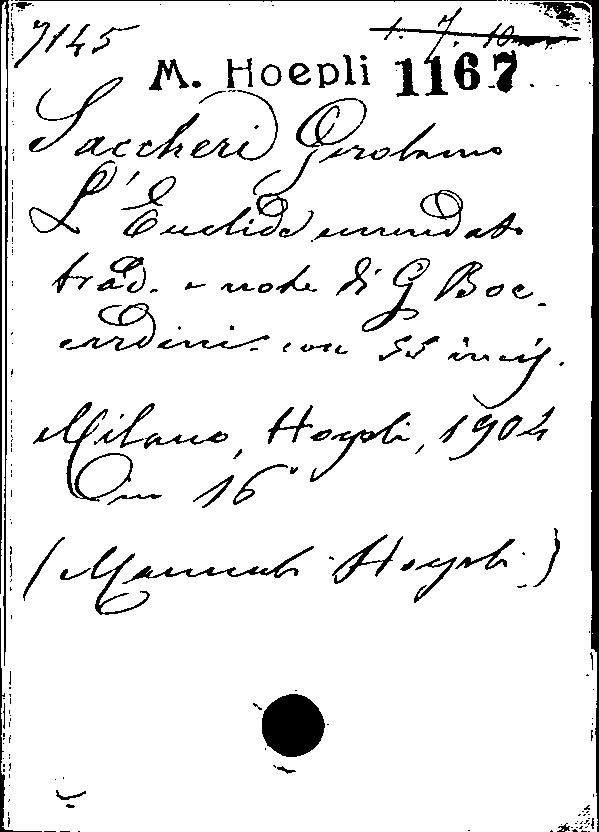 7145 1. 7. 10
M. Hoepli 1167
Saccheri Gerolamo
L'Euclide emendato
trad. e note di G Boc.
cardini. con 55 incis.
Milano, Hoepli, 1904
in 16°
(Manuali Hoepli)